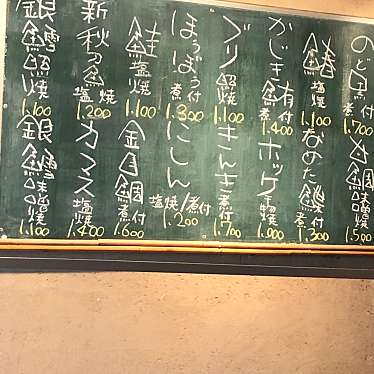 のど黒 煮付 1.700
鯖 塩焼 1.100
なめた鰈 煮付 1.300
かじき鮪 煮付 1.400
ホッケ 干物 1.000
ブリ 照焼 1.100
きんき 煮付 1.700
ほうぼう 煮付 1.300
にしん 塩焼/煮付 1.200
鮭 塩焼 1.100
金目鯛 煮付 1.600
新秋刀魚 塩焼 1.200
カマス 塩焼 1.400
銀鱈 照焼 1.100
銀鱈 味噌焼 1.100